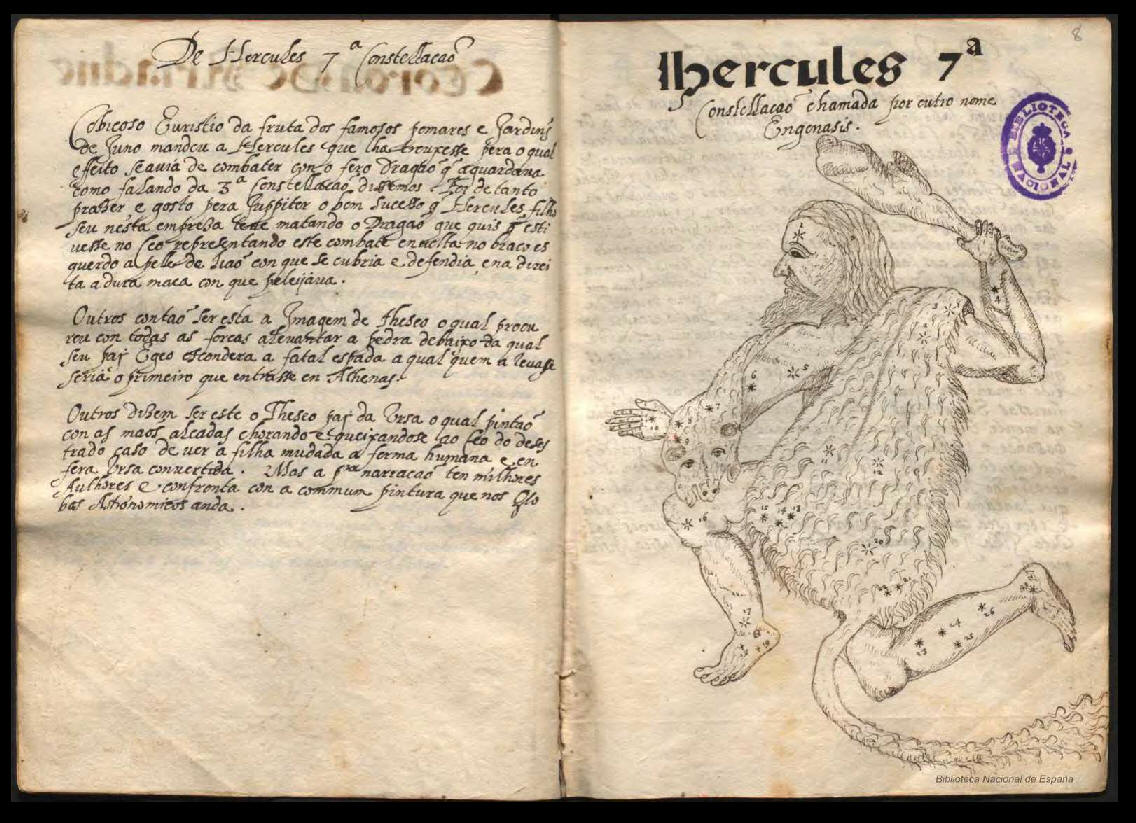 De Hercules 7ª Constellacaõ
Cobicoso Euristio da fruta dos famosos pomares e Jardins
de Juno mandou a Hercules que lha trouxesse pera o qual
effeito se avia de combater con o fero Dragaõ q̃ aguardava
como falando da 3ª Constellacaõ dissemos. Foi de tanto
prazer e gosto pera Juppiter o bom sucesso q̃ Hercules filho
seu nesta empresa teve matando o Dragaõ que quis q̃ esti
vesse no Ceo representando este combate envolta no braco es
querdo a pelle de Liaõ con que se cubria e defendia e na direi
ta a dura maca con que peleijava.
Outros contaõ ser esta a Jmagem de Theseo o qual procu
rou con todas as forcas alevantar a pedra debaixo da qual
seu pai Egeo escondera a fatal espada a qual quem a levasse
seria o primeiro que entrasse en Athenas.
Outros dizem ser este o Theseo pai da Ursa o qual pintaõ
con as maos alcadas chorando e queixandose ao Ceo do deses
trado caso de ver a filha mudada a forma humana e en
fera Ursa convertida. Mas a pra narracaõ ten milhores
Authores e confronta con a commum pintura que nos Glo
bos Astronomicos anda.
8
Hercules 7ª
Constellacaõ chamada por outro nome
Engonasis.
BIBLIOTECA NACIONAL
Biblioteca Nacional de España